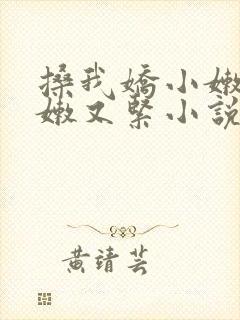 搡我嬌小嫩
嫩又緊小說
黃靖芸